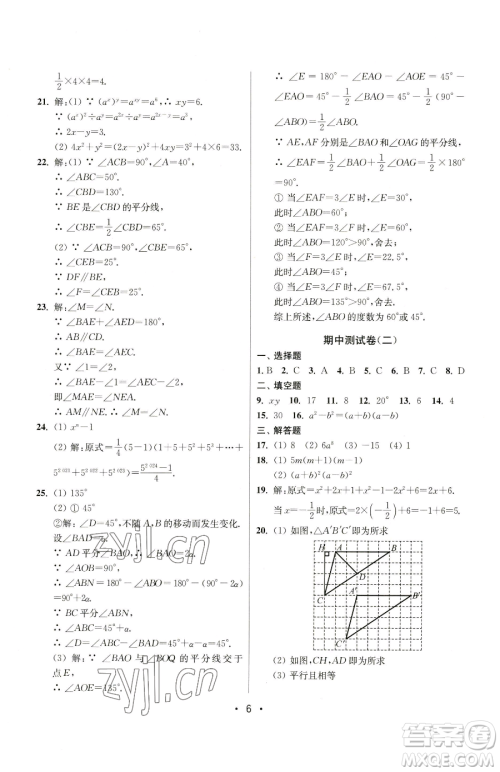 1/2×4×4=4.
21. 解:(1) ∵ (aˣ)ʸ=aˣʸ=a⁶, ∴ xy=6.
∵ (aˣ)²÷aʸ=a²ˣ÷aʸ=a²ˣ⁻ʸ=a³,
∴ 2x−y=3.
(2) 4x²+y²=(2x−y)²+4xy=9+4×6=33.
22. 解:(1) ∵ ∠ACB=90°,∠A=40°,
∴ ∠ABC=50°.
∴ ∠CBD=130°.
∵ BE是∠CBD的平分线,
∴ ∠CBE=1/2∠CBD=65°.
(2) ∵ ∠ACB=90°,∠CBE=65°,
∴ ∠CEB=25°.
∵ DF∥BE,
∴ ∠F=∠CEB=25°.
23. 解:∠M=∠N.
∵ ∠BAE+∠AED=180°,
∴ AB∥CD.
∴ ∠BAE=∠AEC.
又∵ ∠1=∠2,
∴ ∠BAE−∠1=∠AEC−∠2.
即∠MAE=∠NEA.
∴ AM∥NE.
∴ ∠M=∠N.
24. (1) xⁿ−1
(2) 解:原式=1/4(5−1)(1+5+5²+5³+⋯+
25. (1) 135°
(2) ① 45°
②解:∠D=45°,不随A,B的移动而发生变化.
设∠BAD=α.
∵ AD平分∠BAO,
∴ ∠BAO=2α.
∵ ∠AOB=90°,
∴ ∠ABN=180°−∠ABO=90°+2α.
∵ BC平分∠ABN,
∴ ∠ABC=45°+α.
∴ ∠D=∠ABC−∠BAD=45°+α−α=45°.
(3) 解:∵ ∠BAO与∠BOQ的平分线交于
点E,
∴ ∠AOE=135°.
∴ ∠E=180°−∠EAO−∠AOE=45°−
∠EAO=45°−1/2∠BAO=45°−1/2(90°−
∠ABO)=1/2∠ABO.
∵ AE,AF分别是∠BAO和∠OAG的平分线,
∴ ∠EAF=1/2∠BAO+1/2∠OAG=1/2×180°
=90°.
① 当∠EAF=3∠E时,得∠E=30°,
此时∠ABO=60°;
② 当∠EAF=3∠F时,得∠E=60°,
此时∠ABO=120°>90°,舍去;
③ 当∠F=3∠E时,得∠E=22.5°,
此时∠ABO=45°;
④ 当∠E=3∠F时,得∠E=67.5°,
此时∠ABO=135°>90°,舍去.
综上所述,∠ABO=60°或45°.
期中测试卷(二)
一、选择题
1. B 2. C 3. A 4. D 5. B 6. C 7. C 8. D
二、填空题
9. xy 10. 17 11. 8 12. 20° 13. 6 14. 4
15. 30 16. a²−b²=(a+b)(a−b)
三、解答题
17. (1) 8 (2) 6a⁸ (3) −15 (4) 1
18. (1) 5m(m+1)(m−1)
(2) (a+b)²(a−b)²
19. 解:原式=x²+2x+1+x²−4−x²=x²+2x−3
20. (1) 如图,△A′B′C′即为所求
H A B C D A′ B′ C′
(2) 如图,CH,AD即为所求
(3) 平行且相等
zyjl.cn
6
答案圈
MXQE.COM